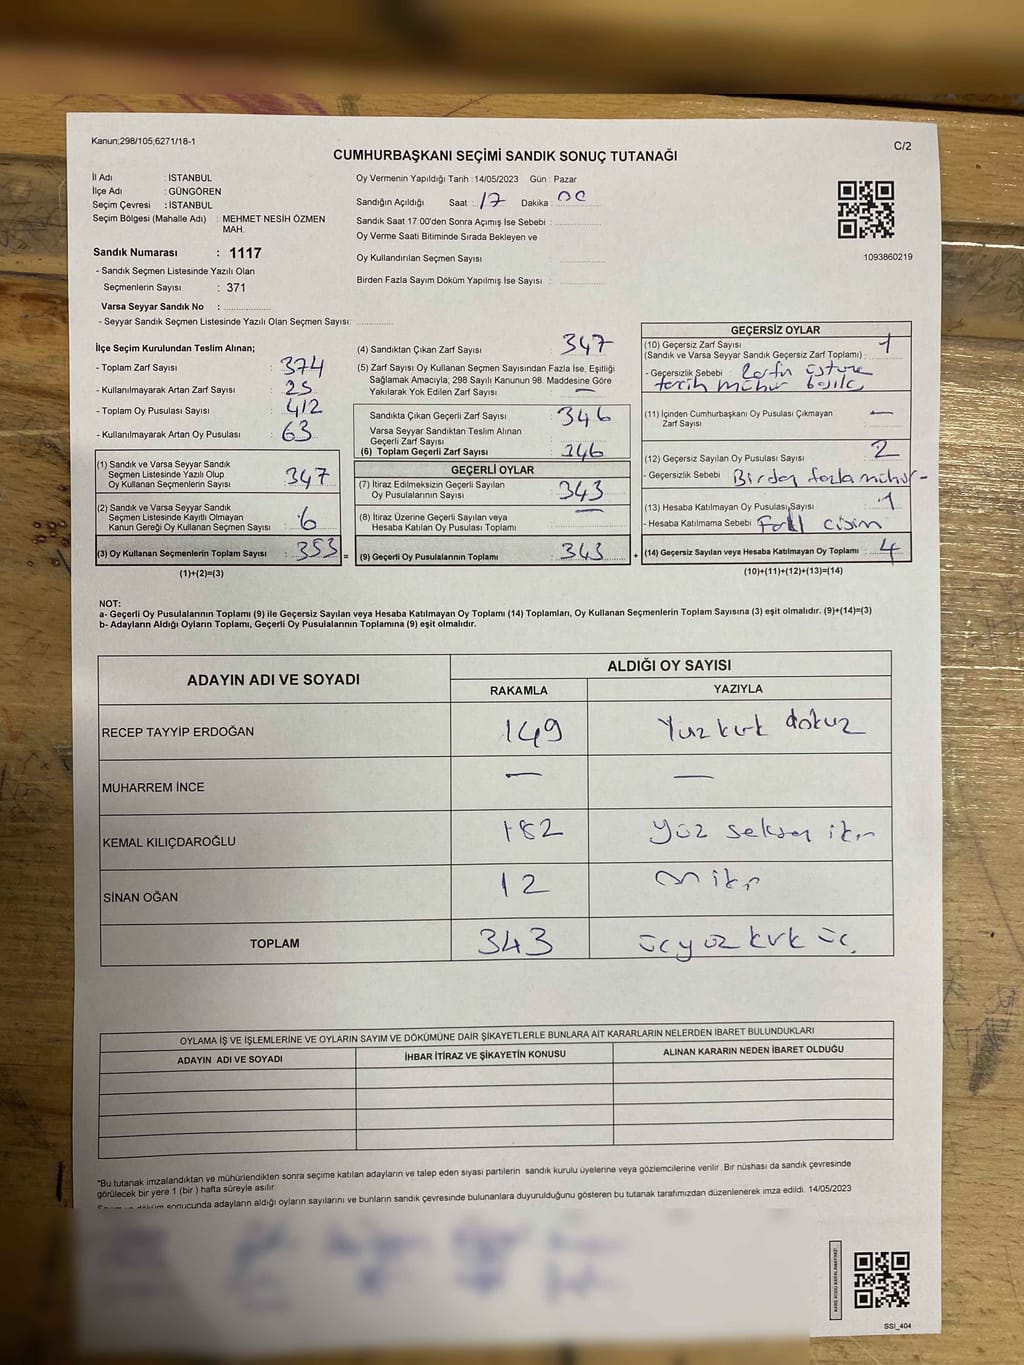 Kanun;298/105;6271/18-1
C/2
CUMHURBAŞKANI SEÇİMİ SANDIK SONUÇ TUTANAĞI
İl Adı : İSTANBUL
İlçe Adı : GÜNGÖREN
Seçim Çevresi : İSTANBUL
Seçim Bölgesi (Mahalle Adı) : MEHMET NESİH ÖZMEN MAH.
Sandık Numarası : 1117
- Sandık Seçmen Listesinde Yazılı Olan
Seçmenlerin Sayısı : 371
Varsa Seyyar Sandık No :
- Seyyar Sandık Seçmen Listesinde Yazılı Olan Seçmen Sayısı:
Oy Vermenin Yapıldığı Tarih : 14/05/2023 Gün : Pazar
Sandığın Açıldığı Saat : 17 Dakika : 00
Sandık Saat 17:00'den Sonra Açımış İse Sebebi :
Oy Verme Saati Bitiminde Sırada Bekleyen ve
Oy Kullandırılan Seçmen Sayısı :
Birden Fazla Sayım Döküm Yapılmış İse Sayısı :
1093860219
İlçe Seçim Kurulundan Teslim Alınan;
- Toplam Zarf Sayısı : 374
- Kullanılmayarak Artan Zarf Sayısı : 25
- Toplam Oy Pusulası Sayısı : 412
- Kullanılmayarak Artan Oy Pusulası : 63
(1) Sandık ve Varsa Seyyar Sandık
Seçmen Listesinde Yazılı Olup
Oy Kullanan Seçmenlerin Sayısı : 347
(2) Sandık ve Varsa Seyyar Sandık
Seçmen Listesinde Kayıtlı Olmayan
Kanun Gereği Oy Kullanan Seçmen Sayısı : 6
(3) Oy Kullanan Seçmenlerin Toplam Sayısı : 353 =
(1)+(2)=(3)
(4) Sandıktan Çıkan Zarf Sayısı : 347
(5) Zarf Sayısı Oy Kullanan Seçmen Sayısından Fazla İse, Eşitliği
Sağlamak Amacıyla; 298 Sayılı Kanunun 98. Maddesine Göre
Yakılarak Yok Edilen Zarf Sayısı : —
Sandıkta Çıkan Geçerli Zarf Sayısı : 346
Varsa Seyyar Sandıktan Teslim Alınan
Geçerli Zarf Sayısı :
(6) Toplam Geçerli Zarf Sayısı : 346
GEÇERLİ OYLAR
(7) İtiraz Edilmeksizin Geçerli Sayılan
Oy Pusulalarının Sayısı : 343
(8) İtiraz Üzerine Geçerli Sayılan veya
Hesaba Katılan Oy Pusulası Toplamı : —
(9) Geçerli Oy Pusulalarının Toplamı : 343 +
GEÇERSİZ OYLAR
(10) Geçersiz Zarf Sayısı
(Sandık ve Varsa Seyyar Sandık Geçersiz Zarf Toplamı) : 1
- Geçersizlik Sebebi : Zarfın üstüne
tercih mühür
(11) İçinden Cumhurbaşkanı Oy Pusulası Çıkmayan
Zarf Sayısı : —
(12) Geçersiz Sayılan Oy Pusulası Sayısı : 2
- Geçersizlik Sebebi : Birden fazla mühür -
(13) Hesaba Katılmayan Oy Pusulası Sayısı : 1
- Hesaba Katılmama Sebebi : cisim
(14) Geçersiz Sayılan veya Hesaba Katılmayan Oy Toplamı : 4
(10)+(11)+(12)+(13)=(14)
NOT:
a- Geçerli Oy Pusulalarının Toplamı (9) ile Geçersiz Sayılan veya Hesaba Katılmayan Oy Toplamı (14) Toplamları, Oy Kullanan Seçmenlerin Toplam Sayısına (3) eşit olmalıdır. (9)+(14)=(3)
b- Adayların Aldığı Oyların Toplamı, Geçerli Oy Pusulalarının Toplamına (9) eşit olmalıdır.
ADAYIN ADI VE SOYADI ALDIĞI OY SAYISI
RAKAMLA YAZIYLA
RECEP TAYYİP ERDOĞAN 149 Yüz kırk dokuz
MUHARREM İNCE — —
KEMAL KILIÇDAROĞLU 182 yüz seksen iki
SİNAN OĞAN 12 on iki
TOPLAM 343 üçyüz kırk üç
OYLAMA İŞ VE İŞLEMLERİNE VE OYLARIN SAYIM VE DÖKÜMÜNE DAİR ŞİKAYETLERLE BUNLARA AİT KARARLARIN NELERDEN İBARET BULUNDUKLARI
ADAYIN ADI VE SOYADI İHBAR İTİRAZ VE ŞİKAYETİN KONUSU ALINAN KARARIN NEDEN İBARET OLDUĞU
*Bu tutanak imzalandıktan ve mühürlendikten sonra seçime katılan adayların ve talep eden siyasi partilerin sandık kurulu üyelerine veya gözlemcilerine verilir .Bir nüshası da sandık çevresinde
görülecek bir yere 1 (bir ) hafta süreyle asılır.
sonucunda adayların aldığı oyların sayılarını ve bunların sandık çevresinde bulunanlara duyurulduğunu gösteren bu tutanak tarafımızdan düzenlenerek imza edildi. 14/05/2023
SSI_404